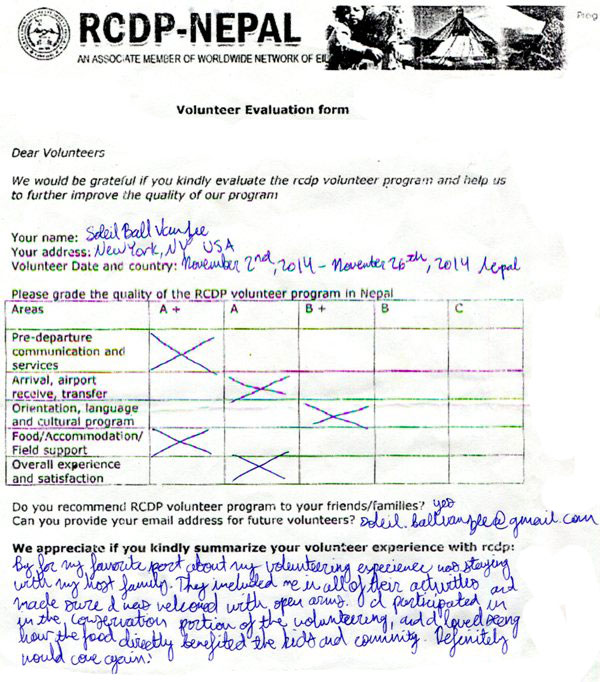 Prog
RCDP-NEPAL
AN ASSOCIATE MEMBER OF WORLDWIDE NETWORK OF EIL
Volunteer Evaluation form
Dear Volunteers
We would be grateful if you kindly evaluate the rcdp volunteer program and help us
to further improve the quality of our program
Your name: Soleil Ball Van Zee
Your address: New York, NY USA
Volunteer Date and country: November 2nd, 2014 - November 26th, 2014 Nepal
Please grade the quality of the RCDP volunteer program in Nepal
Areas A + A B + B C
Pre-departure
communication and
services
Arrival, airport
receive, transfer
Orientation, language
and cultural program
Food/Accommodation/
Field support
Overall experience
and satisfaction
Do you recommend RCDP volunteer program to your friends/families? yes
Can you provide your email address for future volunteers? soleil.ballvanzee@gmail.com
We appreciate if you kindly summarize your volunteer experience with rcdp:
By far my favorite part about my volunteering experience was staying
with my host family. They included me in all of their activities and
made sure I was welcomed with open arms. I participated in
in the Conservation portion of the volunteering, and I loved seeing
how the food directly benefited the kids and community. Definitely
would come again!